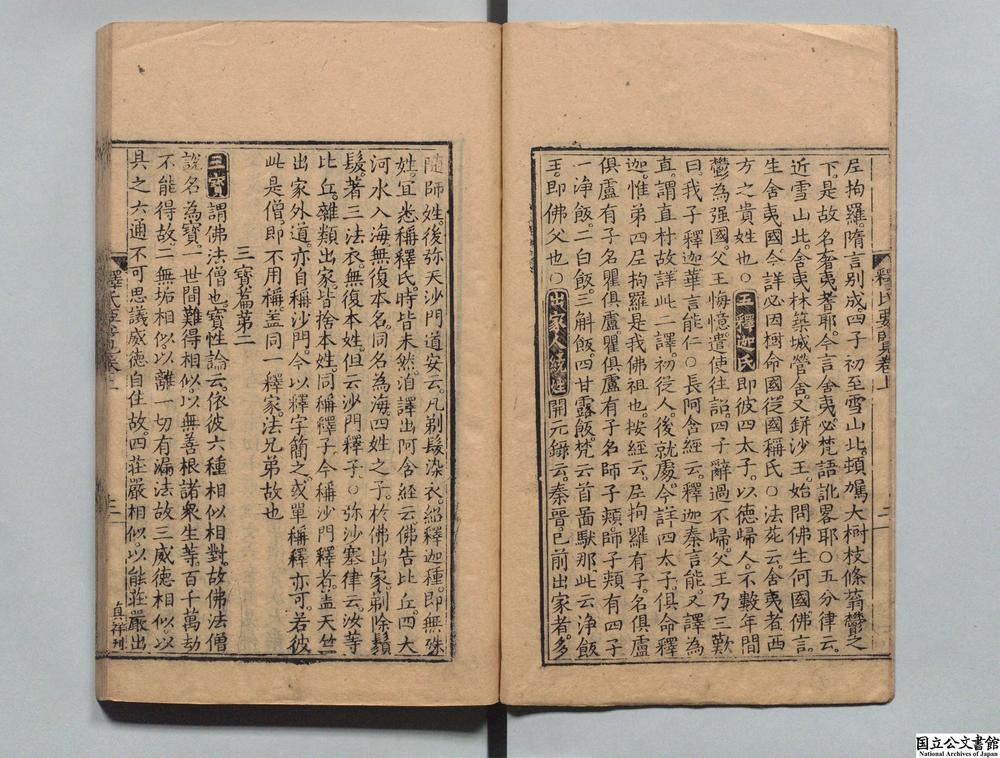 尼拘羅。隋言別成。四子初至雪山北。頓駕大樹枝條蓊欝之
下。是故名奢夷耆耶。今言舍夷必梵語訛畧耶○五分律云。
近雪山北。舍夷林築城營舍。又鉼沙王。始問佛生何國。佛言。
生舍夷國。今詳必因樹命國從國稱氏○法苑云。舍夷者西
方之貴姓也○五釋迦氏即彼四太子。以德歸人。不數年間
欝為强國。父王悔憶遣使往詔四子辭過不歸。父王乃三歎
曰。我子釋迦華言能仁○長阿含經云。釋迦秦言能。又譯為
直。謂直樹故詳此二譯。初從人。後就處。今詳四太子。俱命釋
迦。惟弟四尼拘羅是我佛祖也。按經云。尼拘羅有子。名俱盧
俱盧有子名瞿俱盧。瞿俱盧有子名師子頰。師子頰有四子
一淨飯。二白飯三斛飯。四甘露飯。梵云首啚馱那此云淨飯
王。即佛父也○出家人統姓開元錄云。秦晉。已前出家者。多
釋氏要覽卷上
二
隨師姓。後弥天沙門道安云。凡剃髮染衣。紹釋迦種。即無殊
姓。宜悉稱釋氏。時皆未然洎譯出阿含經云佛告比丘。四大
河水入海。無復本名。同名為海四姓之子。於佛出家。剃除鬚
髮。著三法衣。無復本姓。但云沙門釋子。○弥沙塞律云。汝等
比丘。雜類出家。皆捨本姓。同稱釋子。今稱沙門釋者。盖天竺
出家外道。亦自稱沙門。今以釋字簡之。或單稱釋亦可。若彼
此是僧。即不用稱。盖同一釋家。法兄弟故也
三寶篇第二
三寶謂佛法僧也。寶性論云。依彼六種相似相對。故佛法僧
說名為寶。一世間難得相似。以無善根諸衆生等。百千萬劫
不能得故。二無垢相似。以離一切有漏法故三威德相似。以
具之六通不可思議威德自住故四莊嚴相似。以能莊嚴出
釋氏要覽卷上
三
真祥刊
国立公文書館
National Archives of Japan